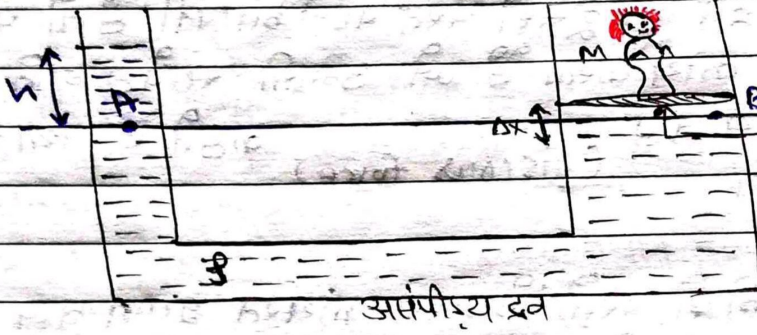 h
A
M
B
Δx
ρ
असंपीड्य द्रव